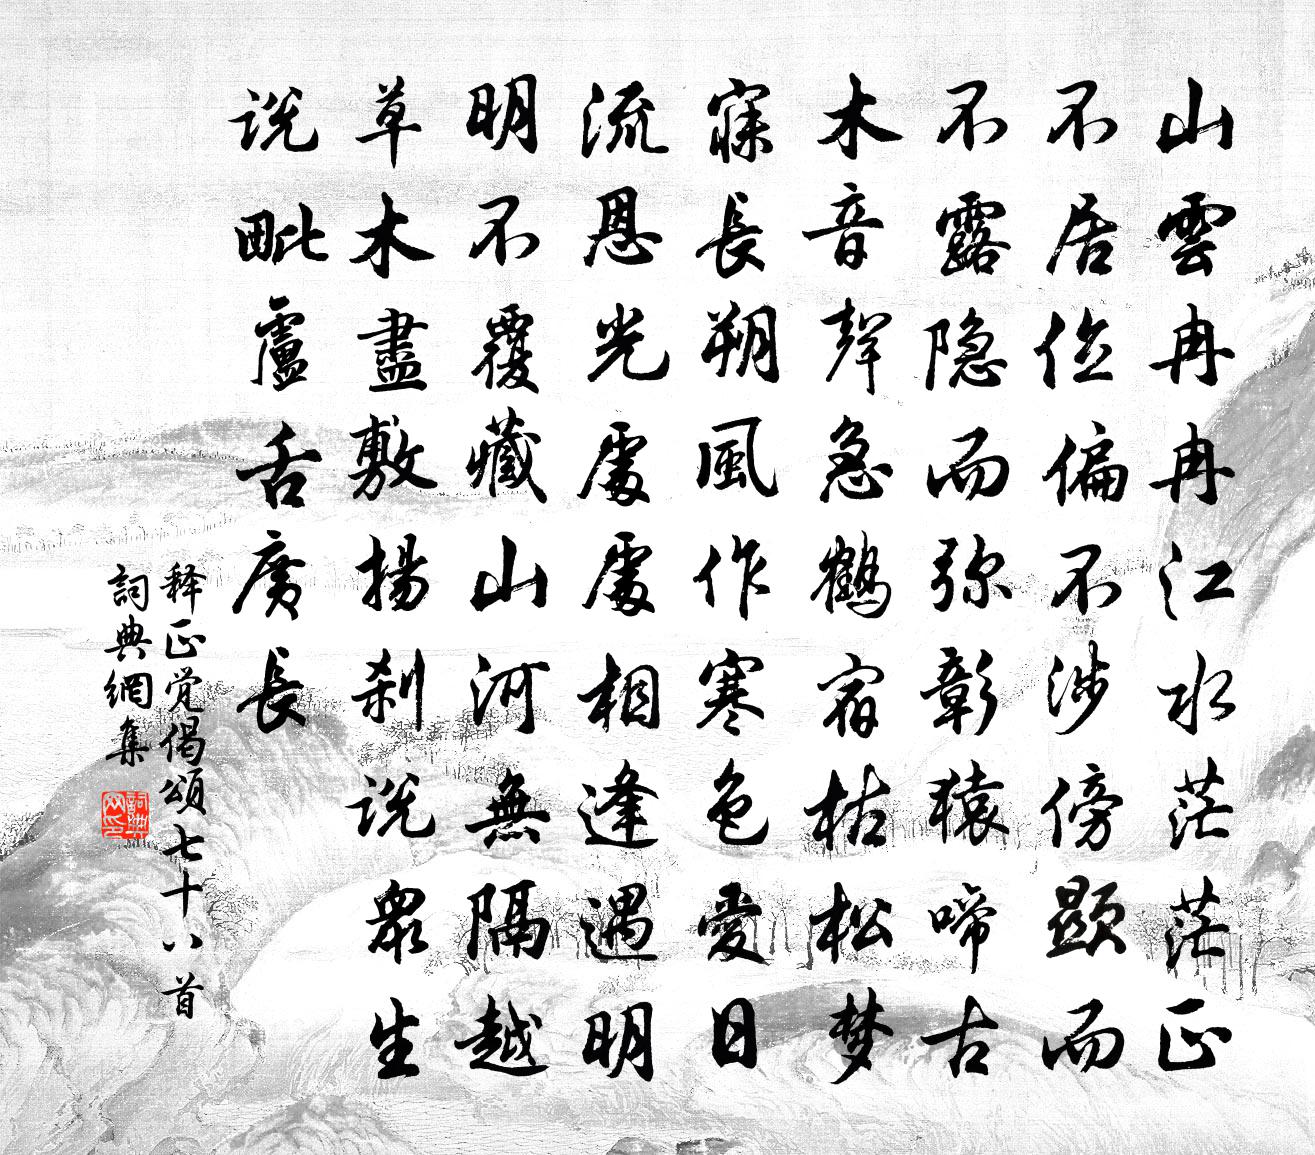 山雲冉冉江水茫茫正
不居位偏不涉傍顯而
不露隐而弥彰猿啼古
木音聲急鶴宿枯松梦
寐長朔風作寒色愛日
流恩光處處相逢遇明
明不覆藏山河無隔越
草木盡敷揚刹说衆生
说毗盧舌廣長
释正觉偈頌七十八首
詞典網集
詞典
网印